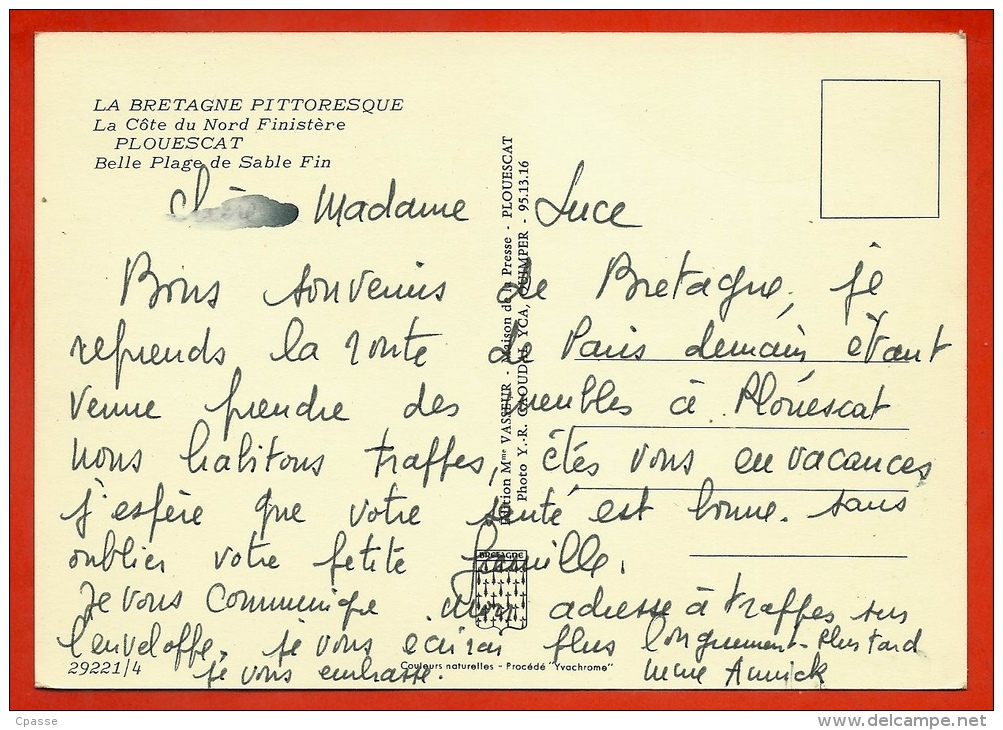 LA BRETAGNE PITTORESQUE
La Côte du Nord Finistère
PLOUESCAT
Belle Plage de Sable Fin
Chère Madame Luce
Bons souvenirs de Bretagne, je
reprends la route de Paris demain étant
venue prendre des meubles à Plouescat
nous habitons trappes, étés vous en vacances
j'espère que votre santé est bonne. sans
oublier votre petite famille.
Je vous communique mon adresse à trappes sur
l'enveloppe. je vous ecirai plus longuement - Plus tard
je vous embrasse. Annick
Edition Mme VASSEUR - Maison de la Presse - PLOUESCAT
Photo Y.-R. CAOUDAL, YCA, QUIMPER - 95.13.16
BRETAGNE
29221/4
Couleurs naturelles - Procédé "Yvachrome"
Cpasse
www.delcampe.net